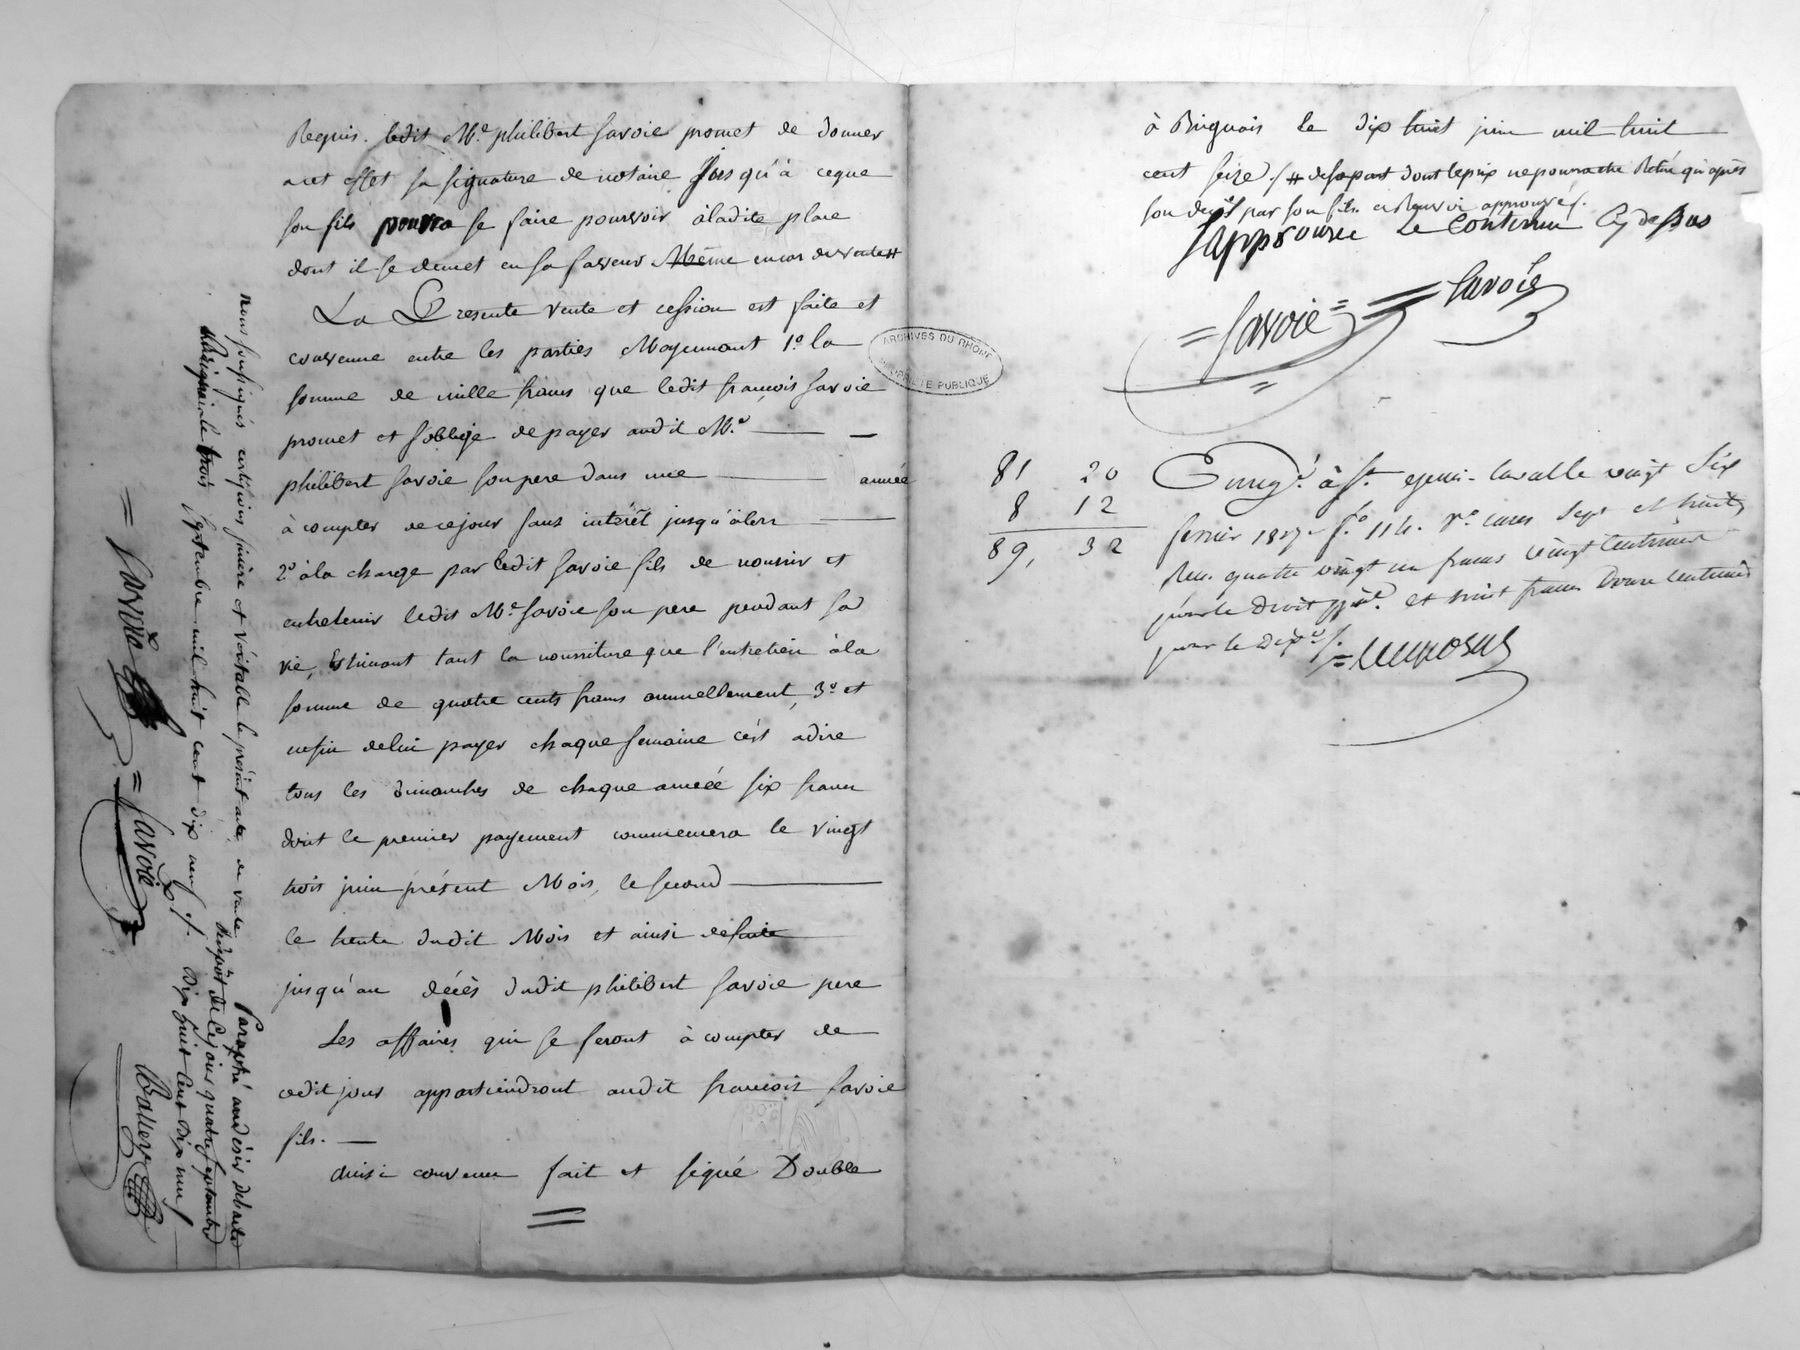 Requis. ledit Me. philibert Savoie promet de donner
acet effet sa signature de notaire Jusqu'à ceque
son fils pourra se faire pourvoir àladite place
dont il se demet en sa faveur Même encas de vente #
La Presente vente et cession est faite et
convenue entre les parties Moyennant 1o. la
somme de mille francs que ledit françois Savoie
promet et s'oblige de payer audit Me. —
philibert Savoie son pere dans une — année
à compter de ce jour sans interêt jusqu'alors —
2o àla charge par ledit Savoie fils de nourrir et
entretenir ledit Me Savoie son pere pendant sa
vie, Estimant tant la nourriture que l'entretien àla
somme de quatre cents francs annuellement, 3o et
enfin delui payer chaque semaine c'est adire
tous les dimanches de chaque année six francs
dont le premier payement commencera le vingt
trois juin présent Mois, le second —
le trente dudit Mois et ainsi desuite
jusqu'au décés dudit philibert Savoie pere
Les affaires qui se feront à compter de
cedit jour appartiendront audit françois Savoie
fils. —
ainsi convenu fait et signé Double
nous soussignés certifions sincère et véritable le présent acte de vente
Brignais le trois Septembre mil huit cent dix neuf
= Savoie = Savoie
Paraphé au désir de l'acte
Dépôt de ce jour quatre septembre
Dix huit cent dix neuf
à Brignais le dix huit juin mil huit
cent seize /. # desapart dont leprix nepourra être Retiré qu'après
son decès par son fils. ce Renvoi approuvé /.
Japprouve Le Contenu Cy desus
= Savoie = = Savoie
ARCHIVES DU RHÔNE
PROPRIÉTÉ PUBLIQUE
81 20
8 12
89, 32
Enregé. à St. genis-laval le vingt Six
fevrier 1817 fo. 114. Vo. cases Sept et huit
Reçu quatre vingt un francs vingt Centimes
pour le droit ppal. et huit francs Douze Centimes
pour le Dixe /.